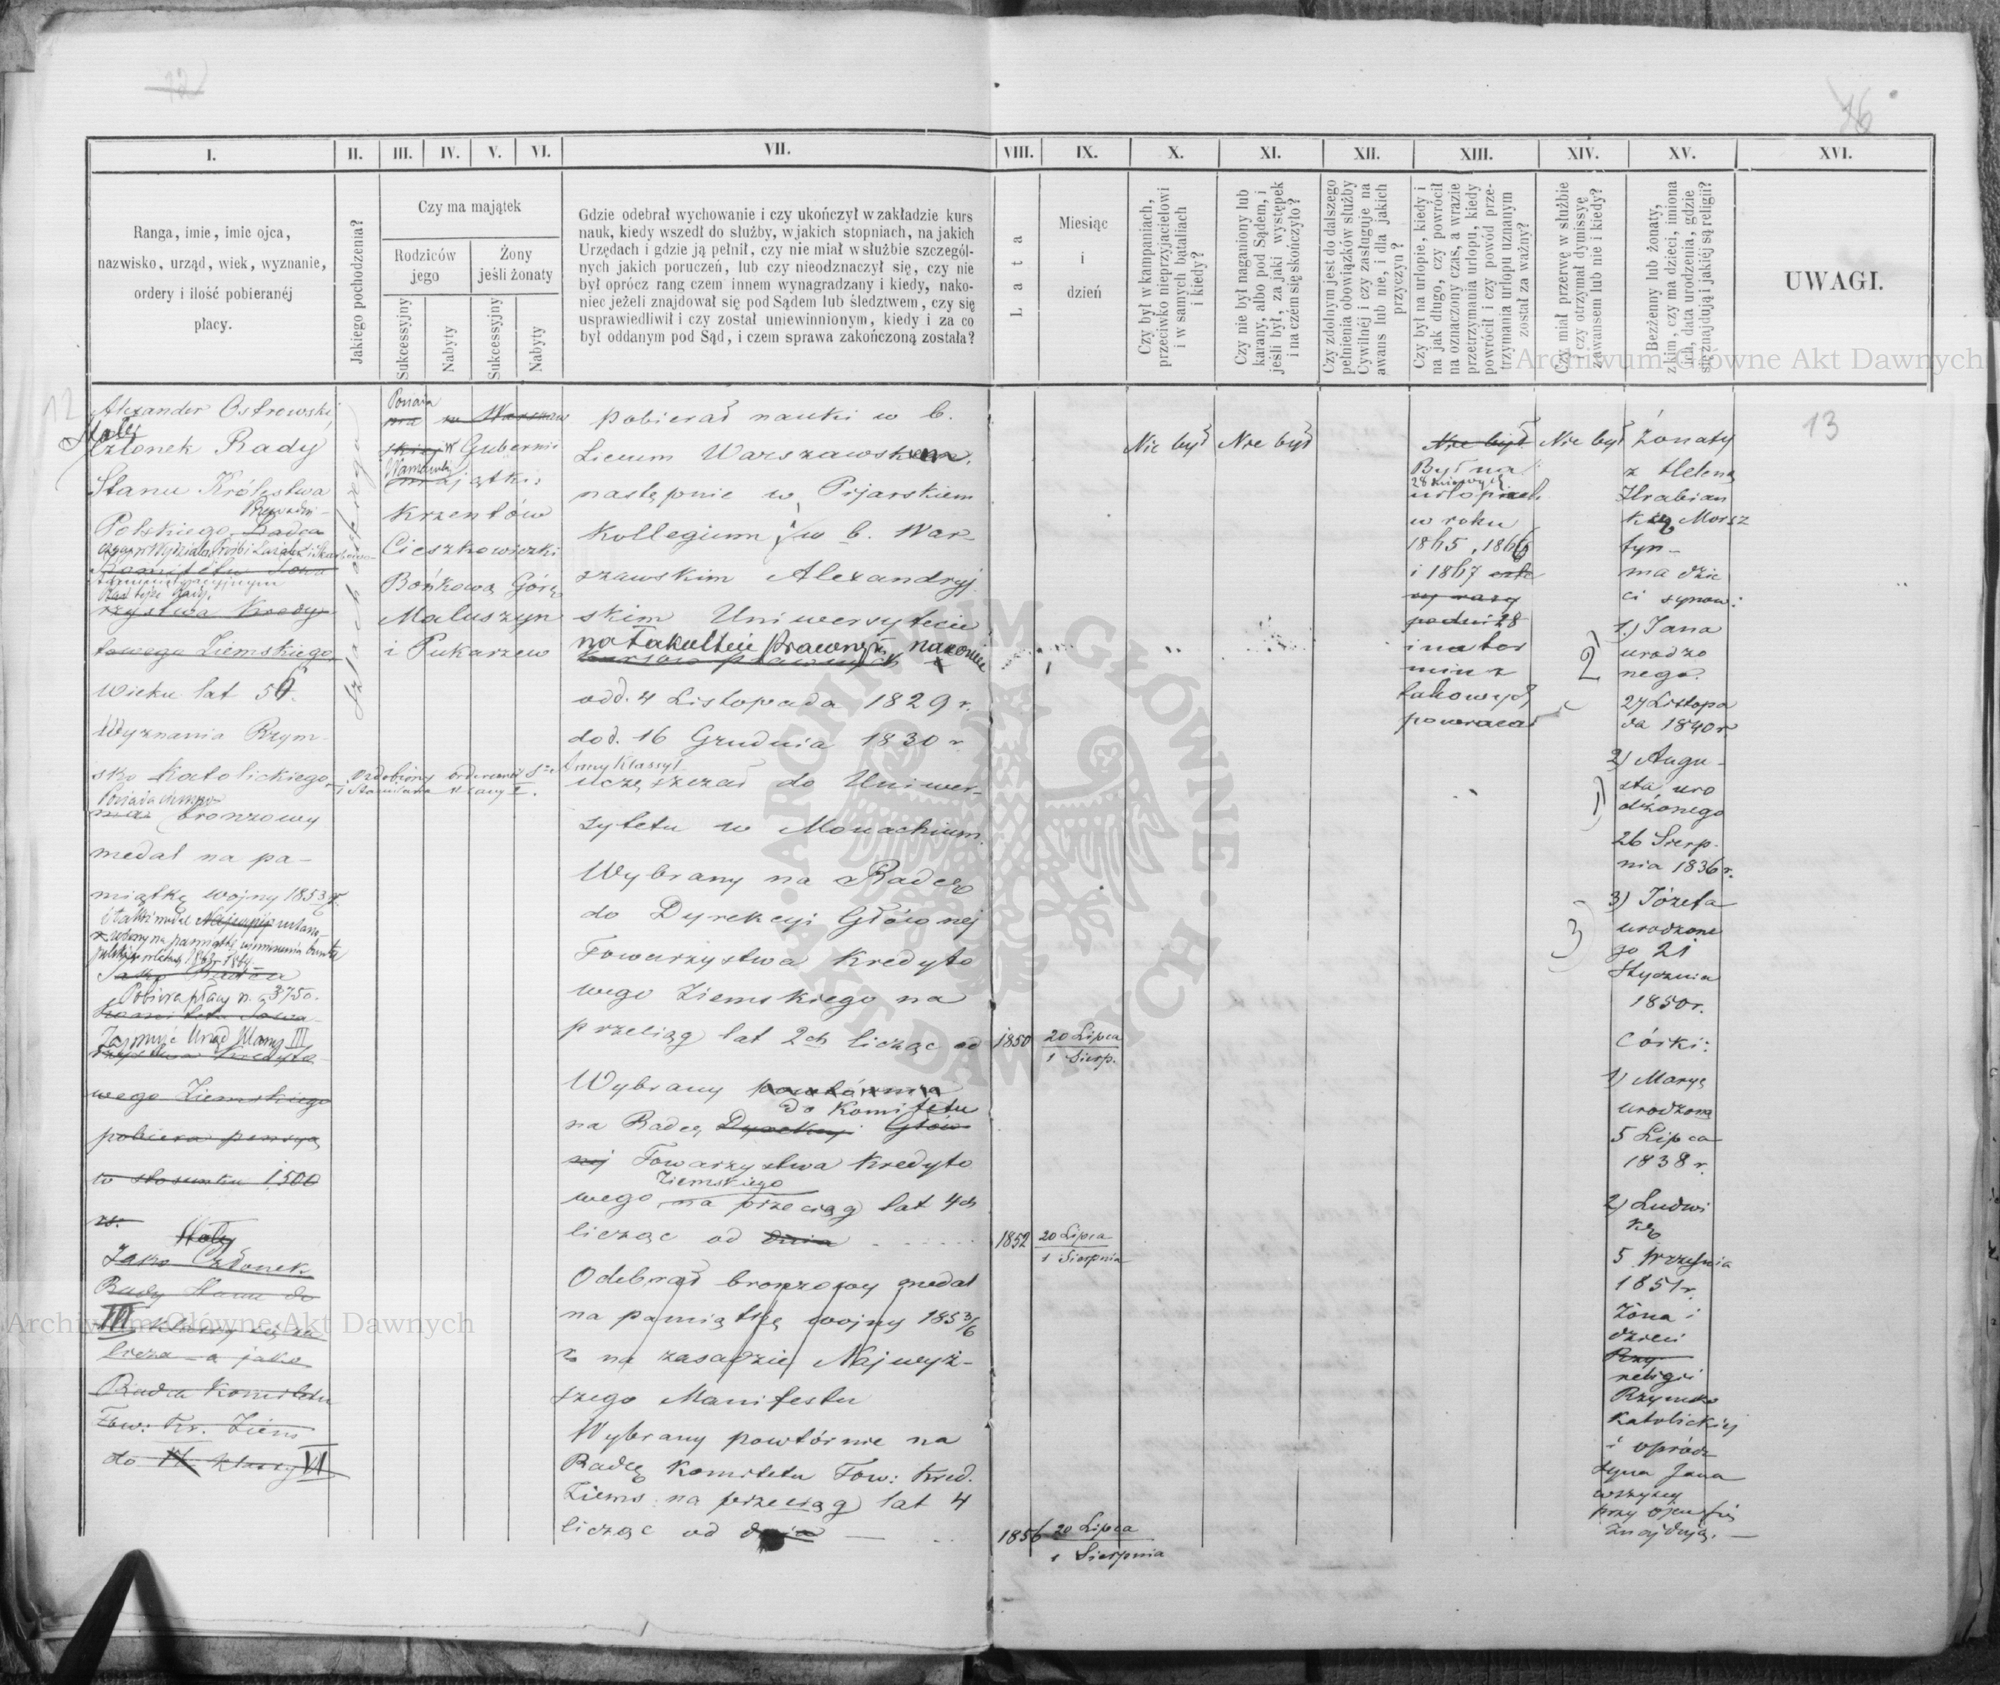 12
16
I.
II.
III.
IV.
V.
VI.
VII.
VIII.
IX.
X.
XI.
XII.
XIII.
XIV.
XV.
XVI.
Ranga, imie, imie ojca,
nazwisko, urząd, wiek, wyznanie,
ordery i ilość pobieranéj
płacy.
Jakiego pochodzenia?
Czy ma majątek
Rodziców
jego
Żony
jeśli żonaty
Sukcessyjny
Nabyty
Sukcessyjny
Nabyty
Gdzie odebrał wychowanie i czy ukończył w zakładzie kurs
nauk, kiedy wszedł do służby, w jakich stopniach, na jakich
Urzędach i gdzie ją pełnił, czy nie miał w służbie szczegól-
nych jakich poruczeń, lub czy nieodznaczył się, czy nie
był oprócz rang czem innem wynagradzany i kiedy, nako-
niec jeżeli znajdował się pod Sądem lub śledztwem, czy się
usprawiedliwił i czy został uniewinnionym, kiedy i za co
był oddanym pod Sąd, i czem sprawa zakończoną została?
Lata
Miesiąc
i
dzień
Czy był w kampaniach,
przeciwko nieprzyjacielowi
i w samych bataliach
i kiedy?
Czy nie był naganiony lub
karany, albo pod Sądem, i
jeśli był, za jaki występek
i na czém się skończyło?
Czy zdolnym jest do dalszego
pełnienia obowiązków służby
Cywilnéj i czy zasługuje na
awans lub nie, i dla jakich
przyczyn?
Czy był na urlopie, kiedy i
na jak długo, czy powrócił
na oznaczony czas, a w razie
przetrzymania urlopu, kiedy
powrócił i czy powód prze-
trzymania urlopu uznanym
został za ważny?
Czy miał przerwę w służbie
i czy otrzymał dymissyę
z awansem lub nie i kiedy?
Bezżenny lub żonaty,
z kim, czy ma dzieci, imiona
ich, data urodzenia, gdzie
się znajdują i jakiéj są religii?
UWAGI.
Archiwum Główne Akt Dawnych
12
Alexander Ostrowski
Stały
Członek Rady
Stanu Królestwa
Polskiego, Radca
Komitetu Towa
rzystwa Kredy-
towego Ziemskiego,
wieku lat 56.
Wyznania Rzym-
sko Katolickiego,
Ozdobiony orderem Ś-go
Stanisława klassy I.
Posiada
ma bronzowy
medal na pa-
miątkę wojny 1853/6 r.
Jako Radca
Pobiera płacy rs. 3750.
Komitetu Towa-
Zajmuje Urząd klassy III
rzystwa Kredyto-
wego Ziemskiego
pobiera pensyą
w stosunku 1500
rs.
Stały
Jako Członek
Rady Stanu do
III klassy się za
licza a jako
Radca Komitetu
Tow: Kr. Ziems
do klassy VI
Szlacheckiego
w Warszaw
skiej w Gubernii
Warszawskiej
majątki:
Krzentów
Cieszkowizki
Bońkowa Górę
Maluszyn
i Pukarzew
pobierał nauki w b.
Liceum Warszawskiem,
następnie w Pijarskiem
Kollegium i w b. War-
szawskim Alexandryj
skim Uniwersytecie
na Fakultecie prawnym, nakoniec
kursów prawnych
odd. 4 Listopada 1829 r.
do d. 16 Grudnia 1830 r.
uczęszczał do Uniwer-
sytetu w Monachium.
Wybrany na Radcę
do Dyrekcyi Głównej
Towarzystwa Kredyto
wego Ziemskiego na
przeciąg lat 2ch licząc od
1850
20 Lipca
1 Sierp.
Wybrany powtórnie
do Komitetu
na Radcę Dyrekcyi Głów-
nej Towarzystwa Kredyto
Ziemskiego
wego na przeciąg lat 4ch
licząc od dnia
1852
20 Lipca
1 Sierpnia
Odebrał bronzowy medal
na pamiątkę wojny 1853/6
r. na zasadzie Najwyż-
szego Manifestu
Wybrany powtórnie na
Radcę Komitetu Tow: Kred.
Ziems: na przeciąg lat 4
licząc od dnia
1856
20 Lipca
1 Sierpnia
Nie był
Nie był
Nie był
Był na
28 dniowych
urlopach
w roku
1865, 1866
i 1867
po dni 28
i na ter
min z
takowych
powracał
Nie był
Żonaty
z Heleną
Hrabian
ką Morsz
tyn-
ma dzie
ci synow:
1) Jana
urodzo
nego
27 Listopa
da 1840 r
2) Augu-
sta uro
dzonego
26 Sierp-
nia 1836 r.
3) Józefa
urodzone
go 21
Stycznia
1850 r.
Córki:
1) Maryę
urodzoną
5 Lipca
1838 r.
2) Ludwi
kę
5 Września
1851 r.
Żona i
dzieci
Rzy-
religii
Rzymsko
Katolickiej
i oprócz
syna Jana
wszyscy
przy ojcu się
znajdują.
2)
1)
3)
13
ARCHIWUM GŁÓWNE AKT DAWNYCH
Archiwum Główne Akt Dawnych